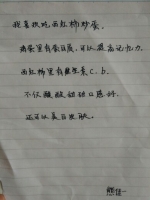 我喜欢吃西红柿炒蛋。
鸡蛋里有蛋白质，可以提高记忆力。
西红柿里有维生素C.b.
不仅酸酸甜甜口感好，
还可以美白皮肤。